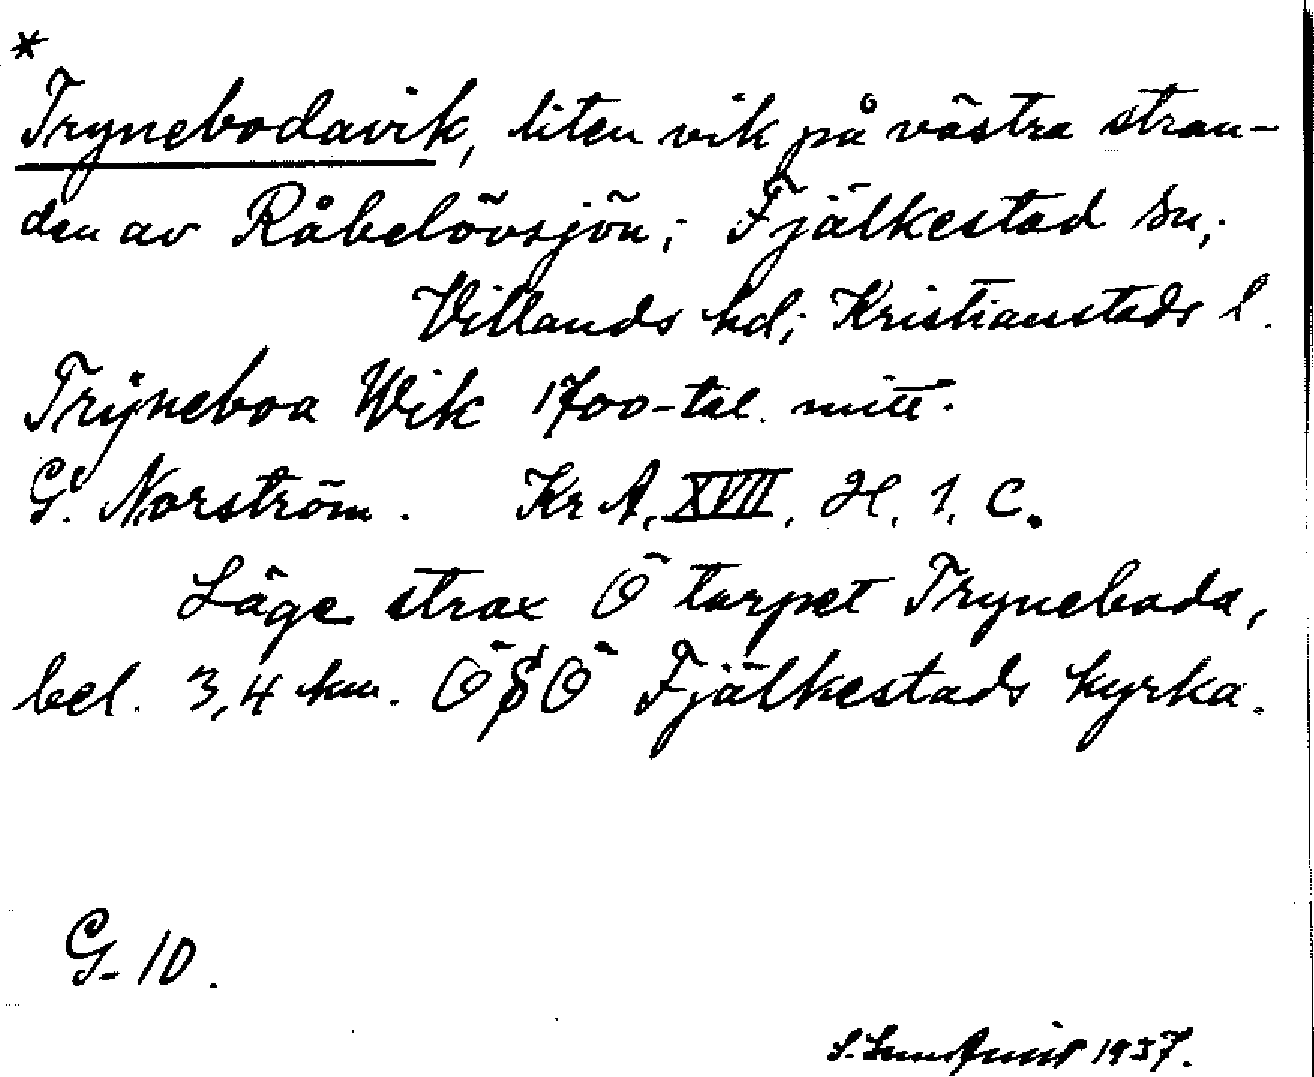 *
Trynebodavik, liten vik på västra stran-
den av Råbelövsjön; Fjälkestad sn;
Villands hd; Kristianstads l.
Trÿneboa Wik 1700-tal. mitt.
G. Norström. KrA, XVII, H, 1, C.
Läge strax Ö torpet Tryneboda,
bel. 3,4 km. ÖSÖ Fjälkestads kyrka.
G-10.
S. Sundquist 1937.